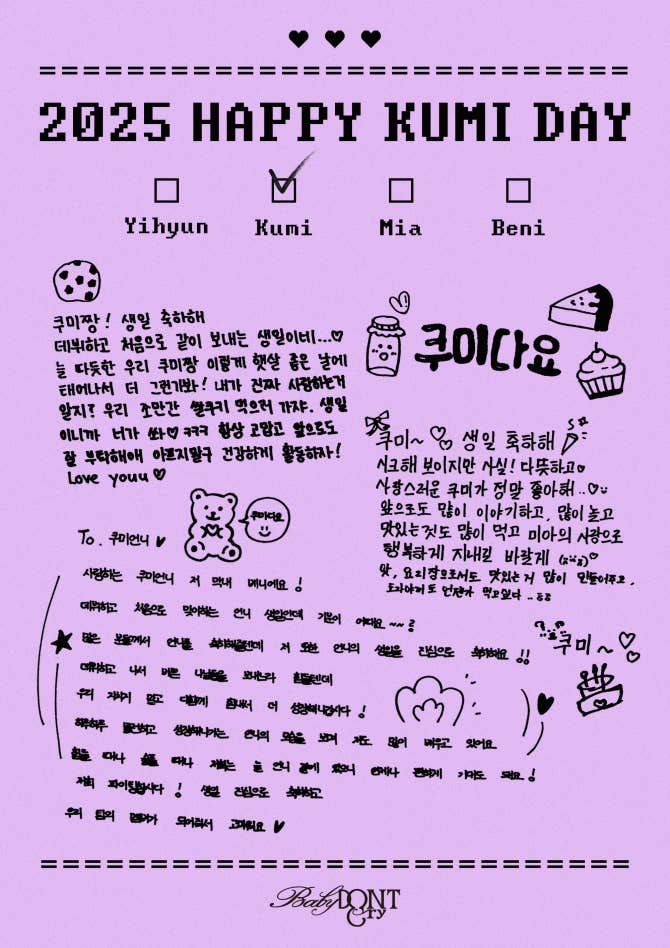 2025 HAPPY KUMI DAY
Yihyun Kumi Mia Beni
쿠미짱! 생일 축하해
데뷔하고 처음으로 같이 보내는 생일이네...♡
늘 따듯한 우리 쿠미짱 이렇게 햇살 좋은 날에
태어나서 더 그런가봐! 내가 진짜 사랑하는거
알지? 우리 조만간 쌀쿠키 먹으러 가쟈. 생일
이니까 너가 쏴♡ ㅋㅋㅋ 항상 고맙고 앞으로도
잘 부탁해애 아프지말구 건강하게 활동하자!
Love youu ♡
쿠미다요
쿠미~ ♡♡ 생일 축하해
시크해 보이지만 사실! 다뜻하고♡
사랑스러운 쿠미가 정말 좋아해..♡
앞으로도 많이 이야기하고, 많이 놀고
맛있는것도 많이 먹고 미아의 사랑으로
행복하게 지내길 바랄게 ♡
맛, 요리짱으로서도 맛있는거 많이 만들어주고,
쿠미다요
To. 쿠미언니 ♥
사랑하는 쿠미언니 저 막내 베니에요!
데뷔하고 처음으로 맞이하는 언니 생일인데 기분이 어때요~~?
많은 분들께서 언니를 축하해줄텐데 저 또한 언니의 생일을 진심으로 축하해요!!
데뷔하고 나서 바쁜 나날들을 보내느라 힘들텐데
우리 지치지 말고 다함께 힘내서 더 성장해나갑시다!
하루하루 발전하고 성장해나가는 언니의 모습을 보며 저도 많이 배우고 있어요
힘들 때나 슬플 때나 저희는 늘 언니 곁에 있으니 언제나 편하게 기대도 돼요!
저희 파이팅합시다! 생일 진심으로 축하하고
우리 팀의 멤버가 되어줘서 고마워요 ♥
쿠미~ ♡♡
BabyDONT Cry